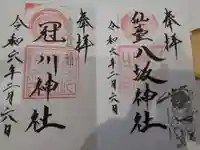 奉拝
仙臺八坂神社
令和六年二月六日
奉拝
冠川神社
令和六年二月六日